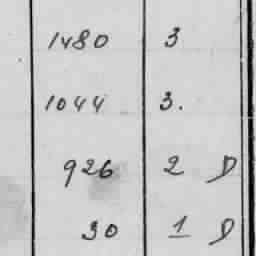 1480 3
1044 3.
926 2 D
30 1 D